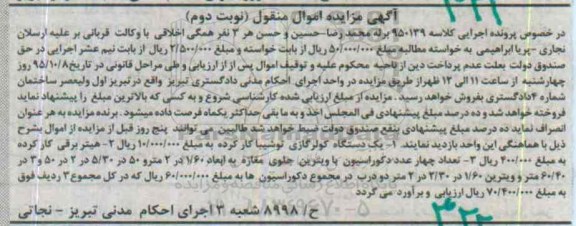 آگهی مزایده اموال منقول (نوبت دوم)
در خصوص پرونده اجرایی کلاسه ۹۵۰۱۳۹ برله محمدرضا-حسین و حسن هر ۳ نفر همگی اخلاقی با وکالت قربانی بر علیه ارسلان
نجاری-پریا ابراهیمی به خواسته مطالبه مبلغ ۵۰/۰۰۰/۰۰۰ ریال از بابت خواسته و مبلغ ۲/۵۰۰/۰۰۰ ریال از بابت نیم عشر اجرایی در حق
صندوق دولت بعلت عدم پرداخت دین از ناحیه محکوم علیه و توقیف اموال پس از ارزیابی و طی مراحل قانونی در تاریخ ۹۵/۱۰/۸ روز
چهارشنبه از ساعت ۱۱ الی ۱۲ ظهر از طریق مزایده در واحد اجرای احکام مدنی دادگستری تبریز واقع در تبریز اول ولیعصر ساختمان
شماره ۴ دادگستری بفروش خواهد رسید. مزایده از مبلغ ارزیابی شده کارشناسی شروع و به کسی که بالاترین مبلغ را پیشنهاد نماید
فروخته خواهد شد و ده درصد مبلغ پیشنهادی فی المجلس اخذ و به مابقی حداکثر یکماه فرصت داده میشود. برنده مزایده به هر عنوان
انصراف نماید ده درصد مبلغ پیشنهادی بنفع صندوق دولت ضبط خواهد شد طالبین می توانند پنج روز قبل از مزایده از اموال بشرح
ذیل با هماهنگی این واحد بازدید نمایند. ۱- یک دستگاه کولرگازی توشیبا کار کرده به مبلغ ۱۰/۰۰۰/۰۰۰ ریال ۲- هیتر برقی کار کرده
به مبلغ ۴۰۰/۰۰۰ ریال ۳- تعداد چهار عدد دکوراسیون با ویترین جلوی مغازه به ابعاد ۱/۶۰ در ۲ مترو ۵۰ در ۵/۳۰ در ۲ در ۵۰ و ۳ در
۶۰/۴۰ متر و ویترین ۱/۶۰ در ۲/۳۰ در ۲ متر دو درب در مجموع دکوراسیون ها به مبلغ ۶۰/۰۰۰/۰۰۰ ریال که در کل مجموع ۳ ردیف فوق
به مبلغ ۷۰/۴۰۰/۰۰۰ ریال ارزیابی و برآورد می گردد
ح/ ۸۹۹۸ شعبه ۳ اجرای احکام مدنی تبریز - نجاتی